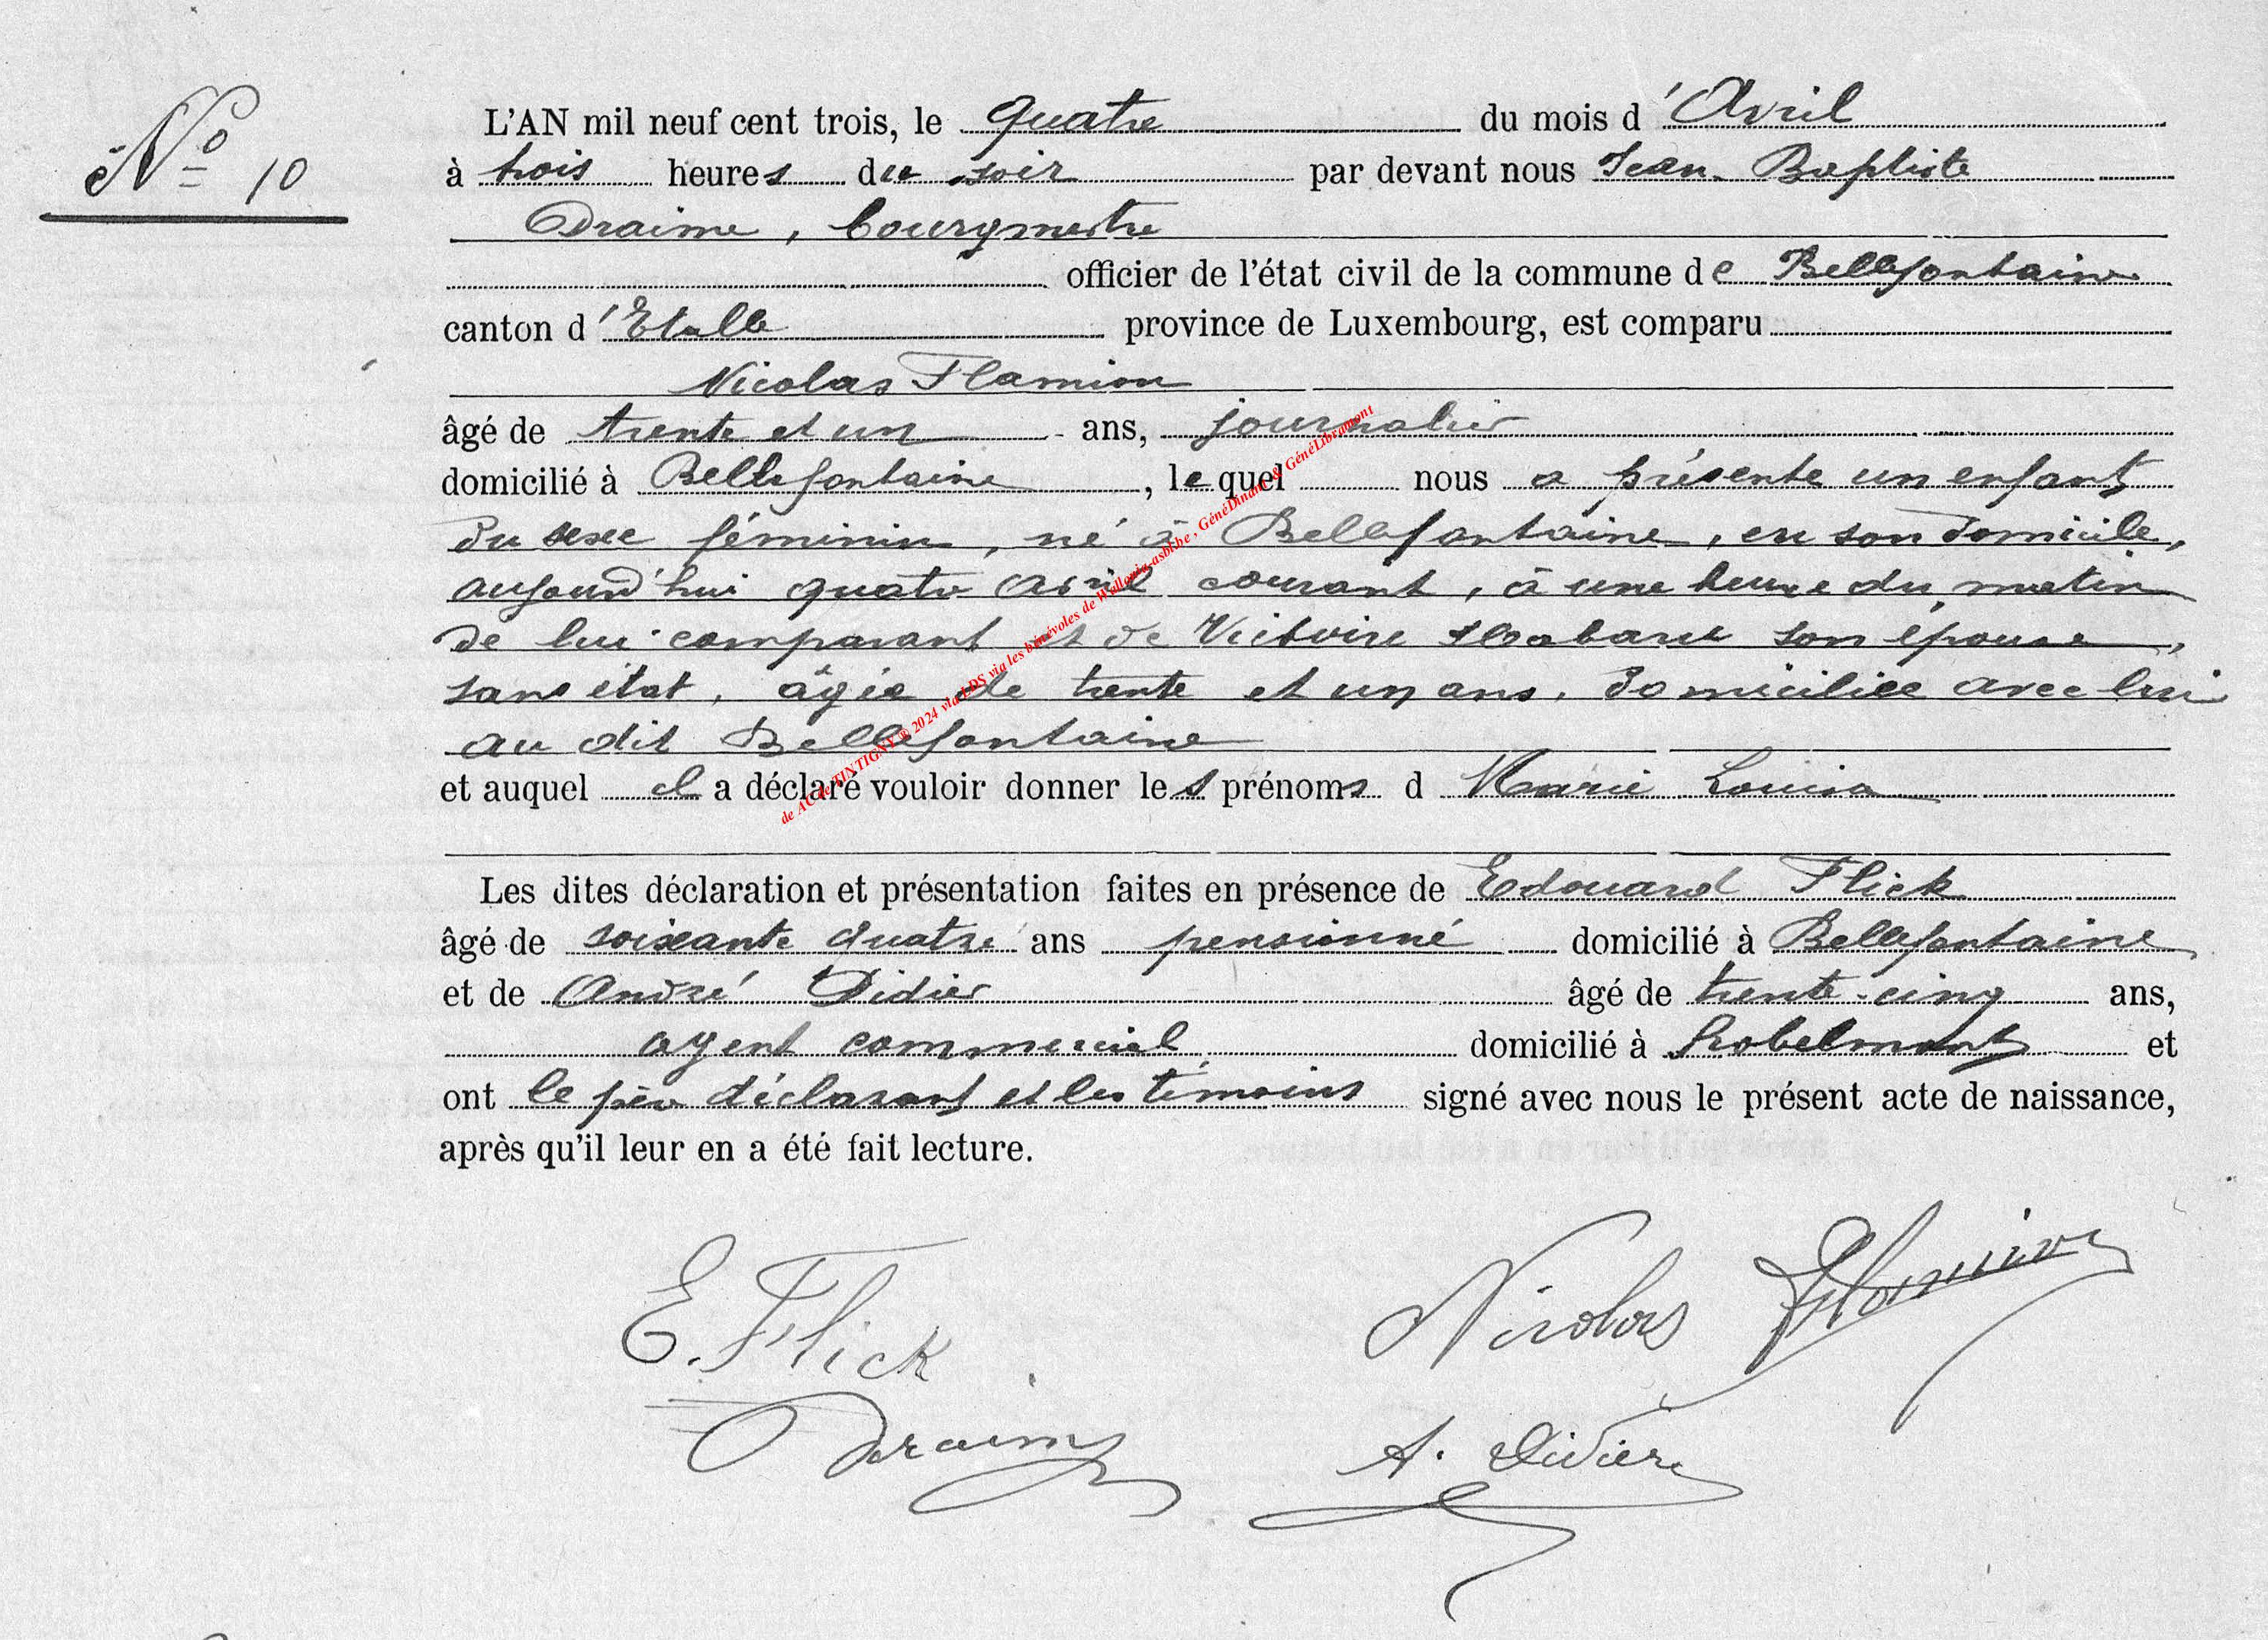 N° 10
L'AN mil neuf cent trois, le quatre du mois d'Avril
à trois heures du soir par devant nous Jean-Baptiste
Draime, bourgmestre
officier de l'état civil de la commune de Bellefontaine
canton d'Etalle province de Luxembourg, est comparu
Nicolas Flamion
âgé de trente et un ans, journalier
domicilié à Bellefontaine, lequel nous a présenté un enfant
du sexe féminin, né à Bellefontaine, en son domicile,
aujourd'hui quatre avril courant, à une heure du matin
de lui comparant et de Victoire son épouse,
sans état, âgée de trente et un ans, domiciliée avec lui
au dit Bellefontaine
et auquel il a déclaré vouloir donner les prénoms d Marie Louisa
Les dites déclaration et présentation faites en présence de Edouard Flick
âgé de soixante quatre ans pensionné domicilié à Bellefontaine
et de André Didier âgé de trente-cinq ans,
agent commercial domicilié à et
ont le père déclarant et les témoins signé avec nous le présent acte de naissance,
après qu'il leur en a été fait lecture.
E. Flick Nicolas Flamion
Draime A. Didier
de AC de TINTIGNY ® 2024 via LDS via les bénévoles de Wallonia-asbl.be, GénéDinant & GénéLibramont